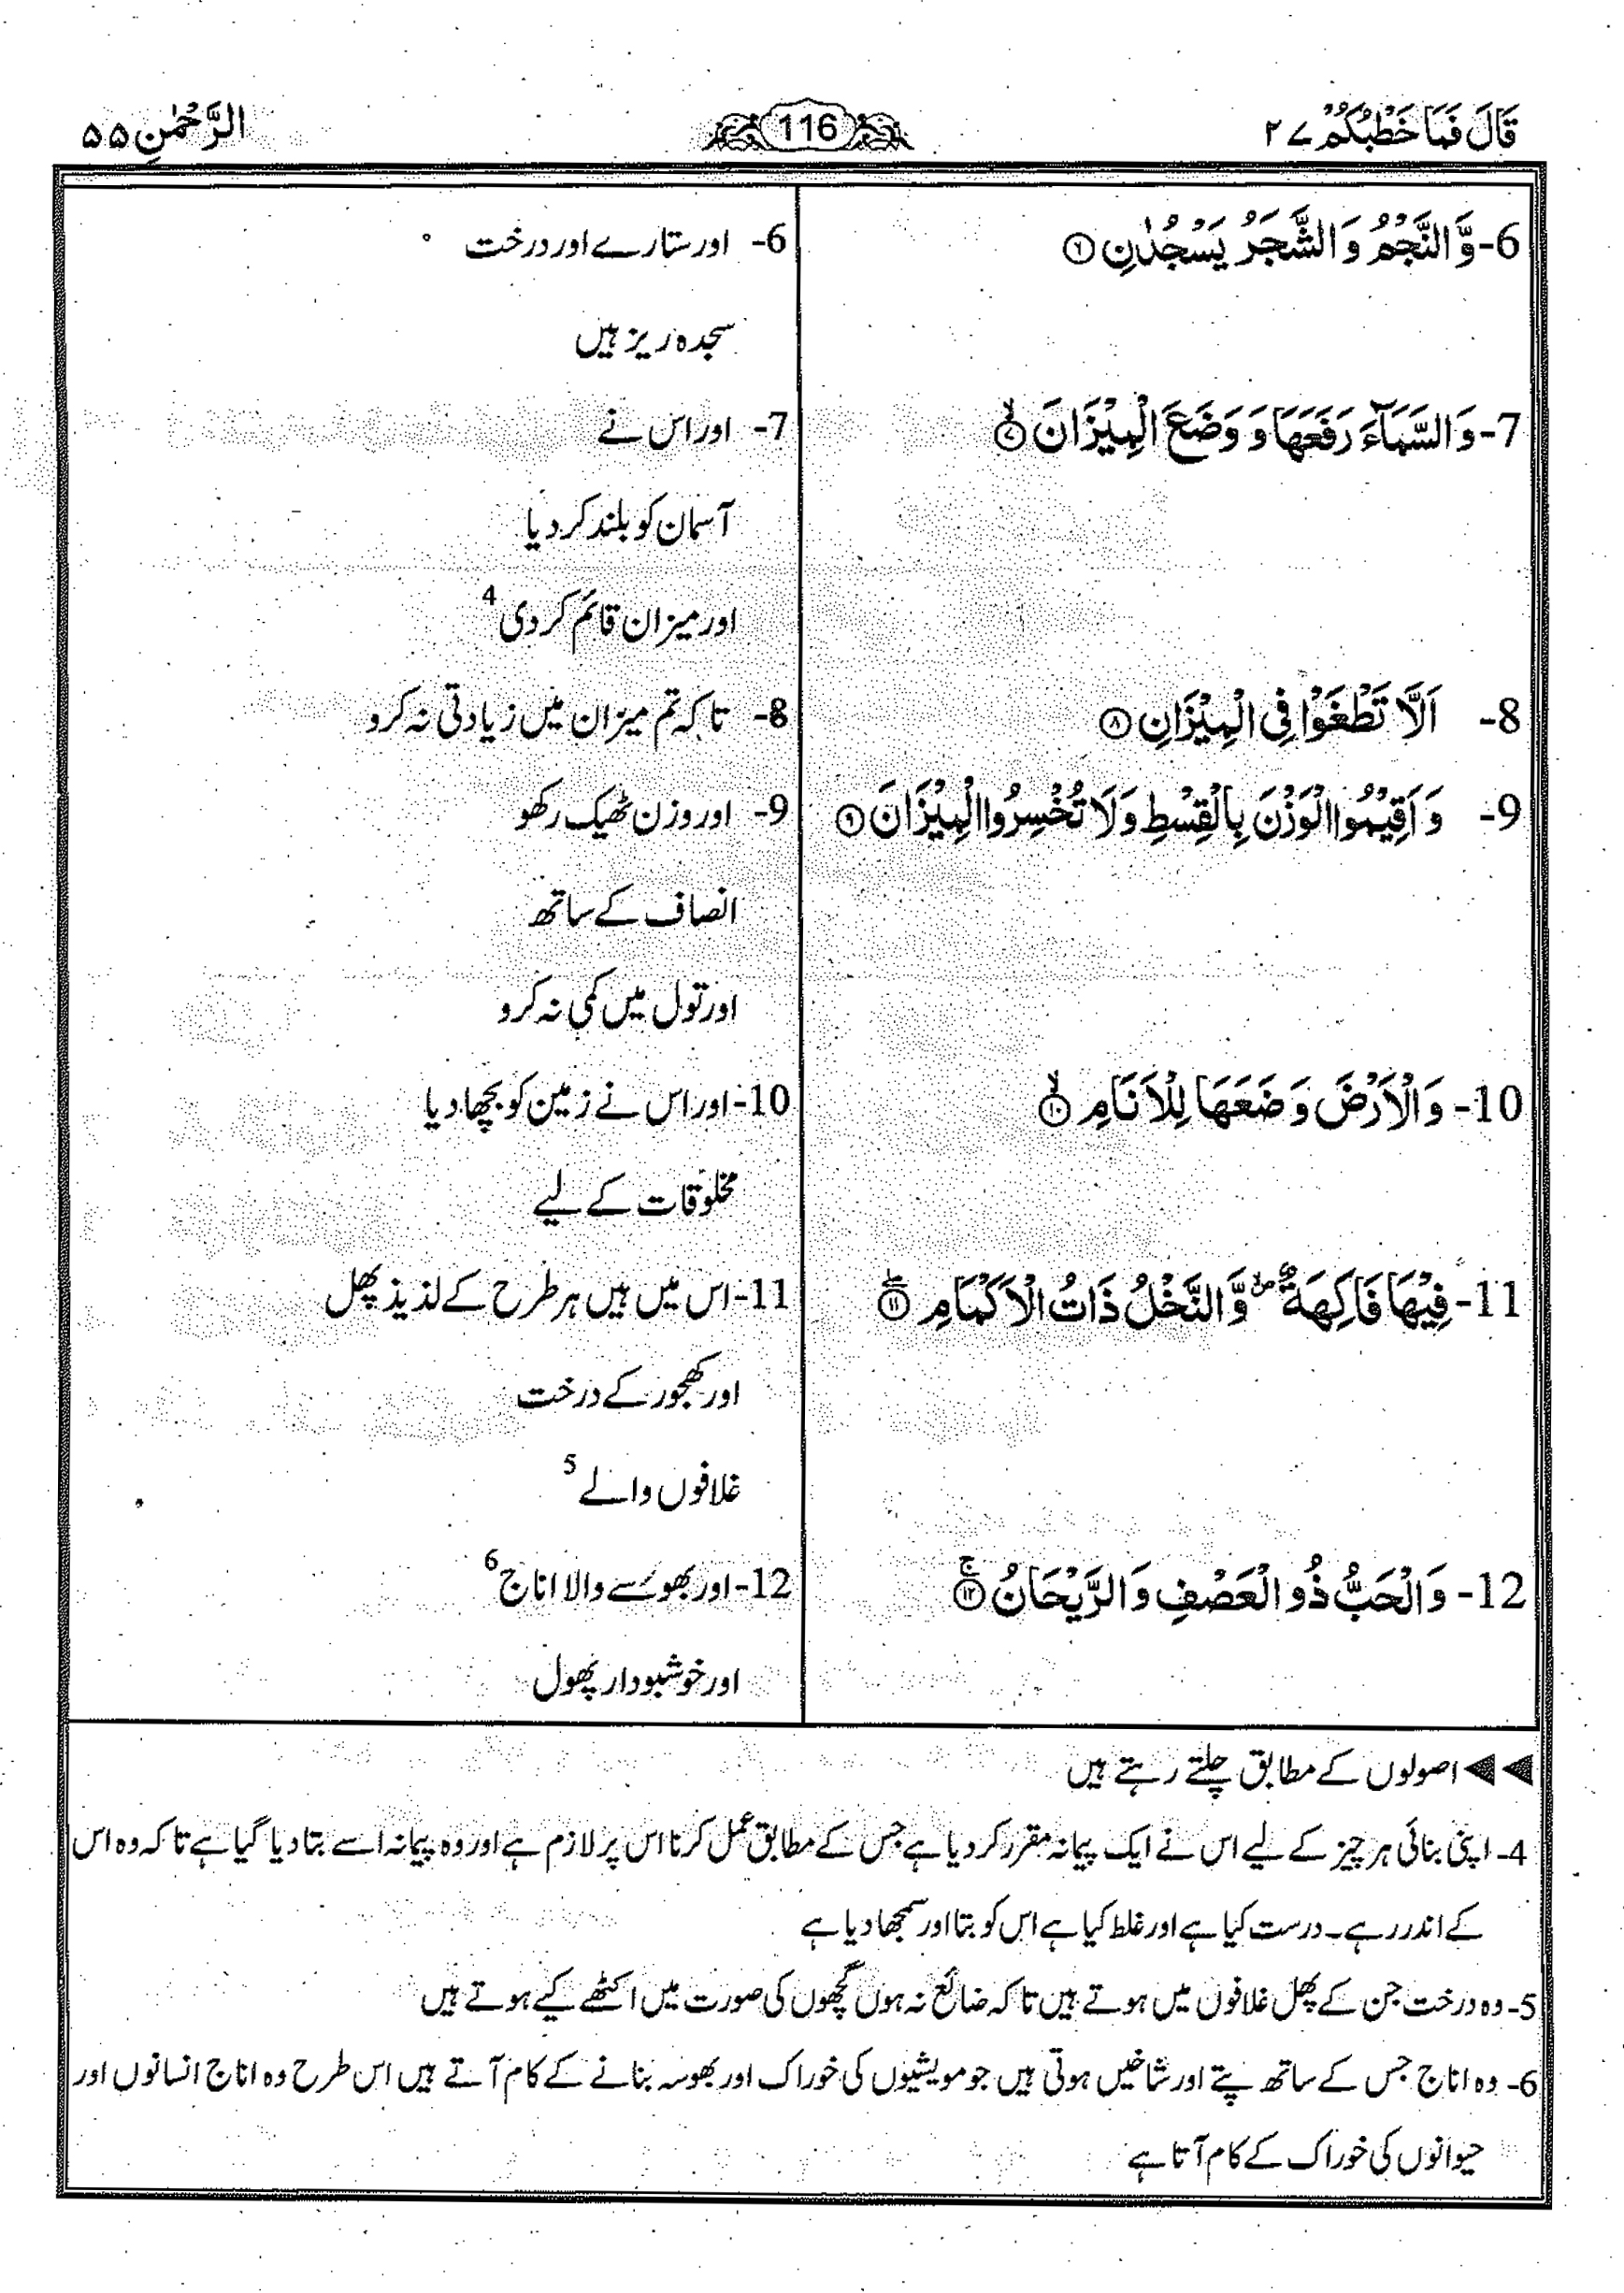 قَالَ فَمَا خَطْبُكُمْ ۲۷
116
الرَّحْمٰنِ ۵۵
6- وَّالنَّجْمُ وَالشَّجَرُ يَسْجُدٰنِ ۝۶
6- اور ستارے اور درخت
سجدہ ریز ہیں
7- وَالسَّمَآءَ رَفَعَهَا وَ وَضَعَ الْمِيْزَانَ ۝۷ۙ
7- اور اس نے
آسمان کو بلند کر دیا
اور میزان قائم کر دی 4
8- اَلَّا تَطْغَوْا فِي الْمِيْزَانِ ۝۸
8- تا کہ تم میزان میں زیادتی نہ کرو
9- وَ اَقِيْمُوا الْوَزْنَ بِالْقِسْطِ وَلَا تُخْسِرُوا الْمِيْزَانَ ۝۹
9- اور وزن ٹھیک رکھو
انصاف کے ساتھ
اور تول میں کمی نہ کرو
10- وَالْاَرْضَ وَضَعَهَا لِلْاَنَامِ ۝۱۰ۙ
10- اور اس نے زمین کو بچھا دیا
مخلوقات کے لیے
11- فِيْهَا فَاكِهَةٌ ۪ۙ وَّالنَّخْلُ ذَاتُ الْاَكْمَامِ ۝۱۱ۖ
11- اس میں ہیں ہر طرح کے لذیذ پھل
اور کھجور کے درخت
غلافوں والے 5
12- وَالْحَبُّ ذُو الْعَصْفِ وَالرَّيْحَانُ ۝۱۲ۚ
12- اور بھوسے والا اناج 6
اور خوشبودار پھول
◀◀ اصولوں کے مطابق چلتے رہتے ہیں
4- اپنی بنائی ہر چیز کے لیے اس نے ایک پیمانہ مقرر کر دیا ہے جس کے مطابق عمل کرنا اس پر لازم ہے اور وہ پیمانہ اسے بتا دیا گیا ہے تا کہ وہ اس
کے اندر رہے۔ درست کیا ہے اور غلط کیا ہے اس کو بتا اور سمجھا دیا ہے
5- وہ درخت جن کے پھل غلافوں میں ہوتے ہیں تا کہ ضائع نہ ہوں گچھوں کی صورت میں اکٹھے کیے ہوتے ہیں
6- وہ اناج جس کے ساتھ پتے اور شاخیں ہوتی ہیں جو مویشیوں کی خوراک اور بھوسہ بنانے کے کام آتے ہیں اس طرح وہ اناج انسانوں اور
حیوانوں کی خوراک کے کام آتا ہے